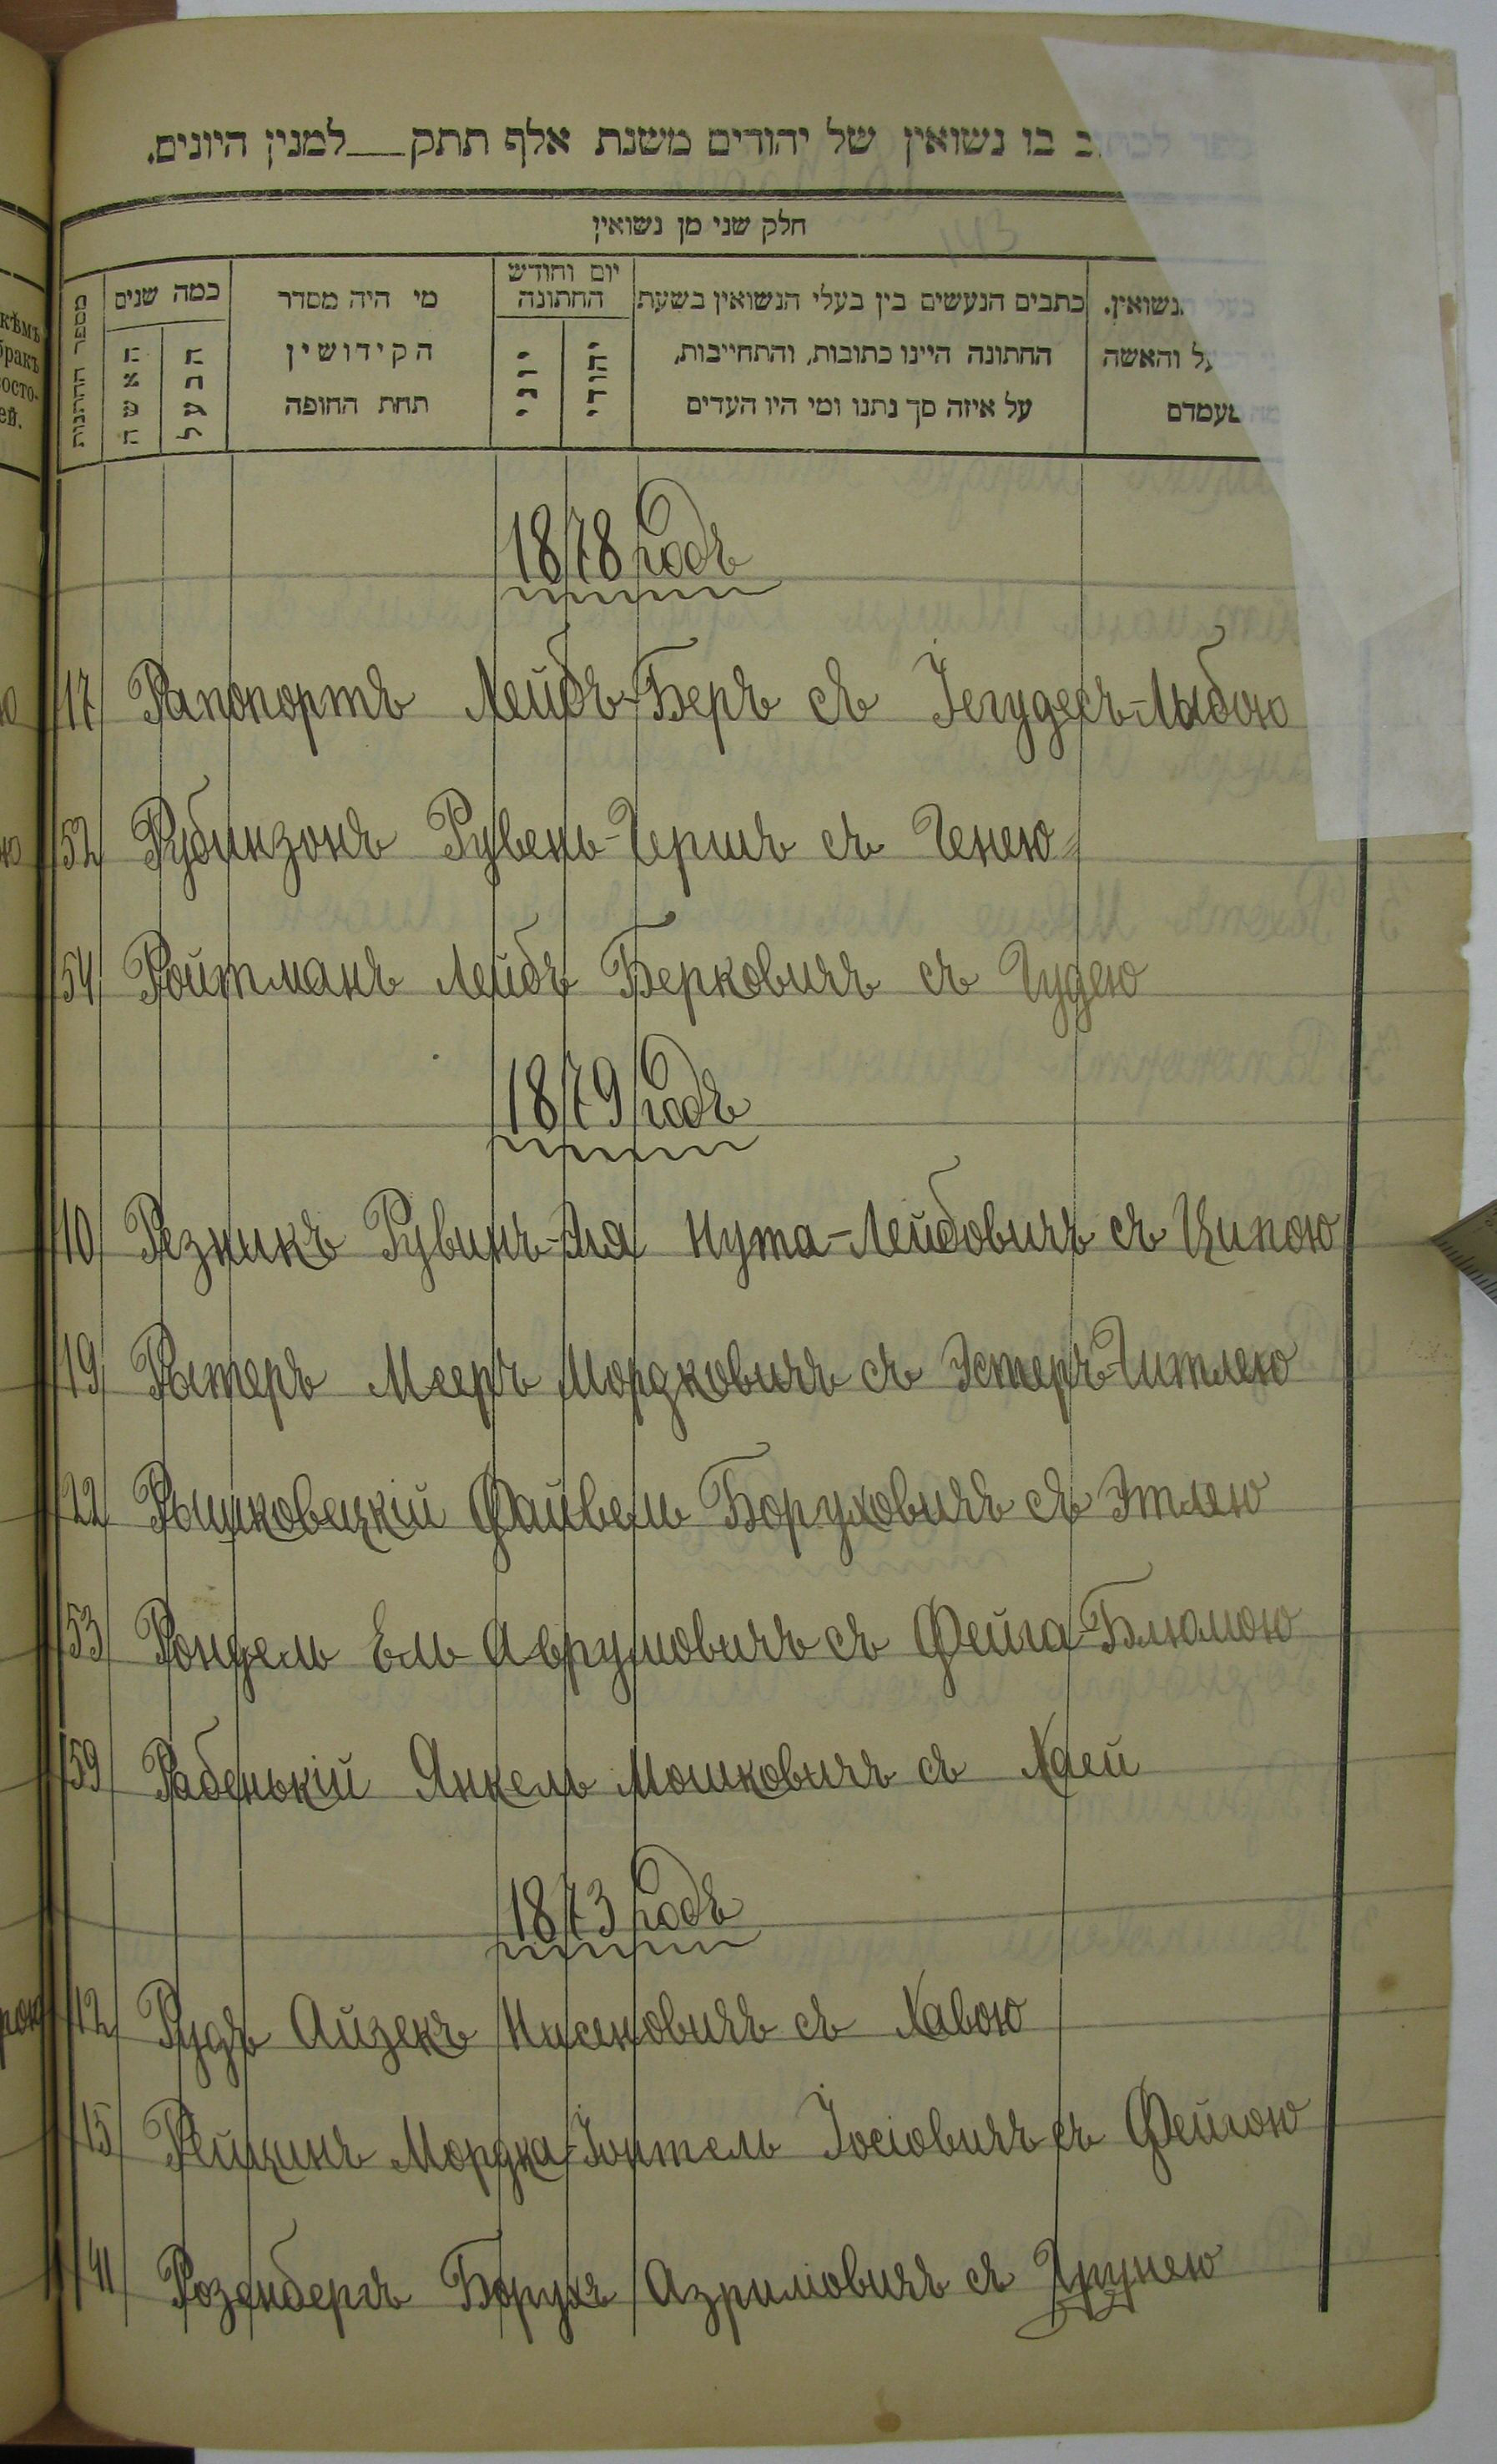 לכתוב בו נשואין של יהודים משנת אלף תתק__למנין היונים.
חלק שני מן נשואין
143
מספר החתונות
כמה שנים
האשה
הבעל
מי היה מסדר
הקידושין
תחת החופה
יום וחודש
החתונה
יוני
יהודי
כתבים הנעשים בין בעלי הנשואין בשעת
החתונה היינו כתובות, והתחייבות,
על איזה סך נתנו ומי היו העדים
נשואין.
והאשה
מעמדם
кѣмъ
бракъ
1878 Годъ
17 Рапопортъ Лейбъ-Беръ съ Іегудесъ-Лыбою
52 Рубинзонъ Рувень-Гершъ съ Генею
54 Ройтманъ Лейбъ Берковичъ съ Гудею
1879 Годъ
10 Резникъ Рувинъ-Эля Нута-Лейбовичъ съ Ципою
19 Рытеръ Мееръ Мордковичъ съ Эстеръ-Гитлею
22 Рышковецкій Файвель Боруховичъ съ Этлею
53 Рондель Ель Аврумовичъ съ Фейга-Блюмою
59 Рабенькій Янкель Мошковичъ съ Хаей
1873 Годъ
12 Рудъ Айзекъ Нисеновичъ съ Хавою
15 Рейцинъ Мордка-Іонтель Іосіовичъ съ Фейгою
41 Розенбергъ Борухъ Азриловичъ съ Грунею